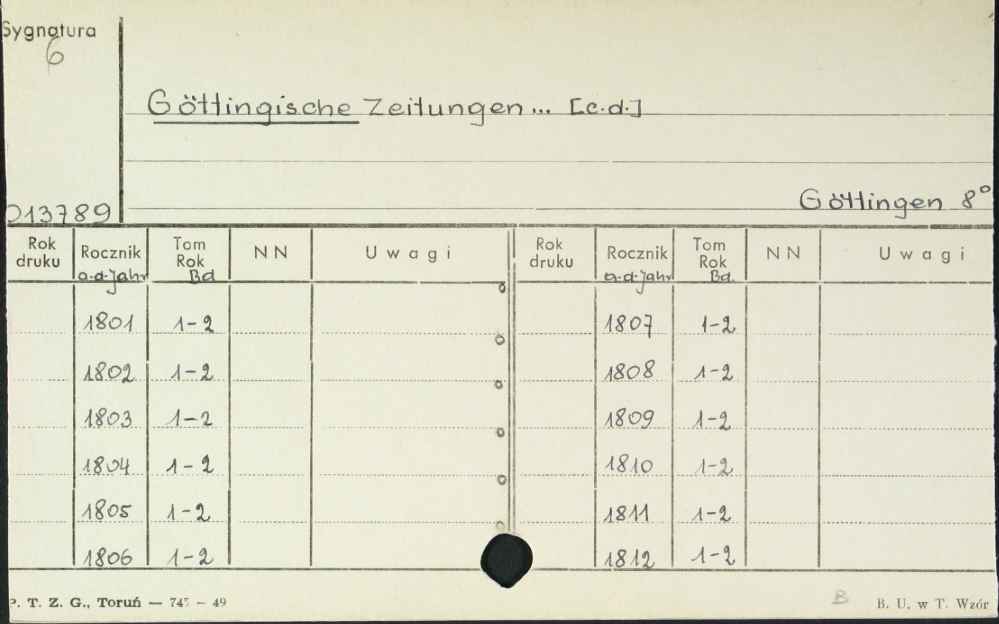 Sygnatura
6
Göttingische Zeitungen... [c.d.]
Göttingen 8°
013789
Rok druku Rocznik Tom Rok NN Uwagi Rok druku Rocznik Tom Rok NN Uwagi
a.d. Jahr Bd a.d. Jahr Bd.
1801 1-2 1807 1-2
1802 1-2 1808 1-2
1803 1-2 1809 1-2
1804 1-2 1810 1-2
1805 1-2 1811 1-2
1806 1-2 1812 1-2
P. T. Z. G., Toruń — 745 - 49 B B. U. w T. Wzór